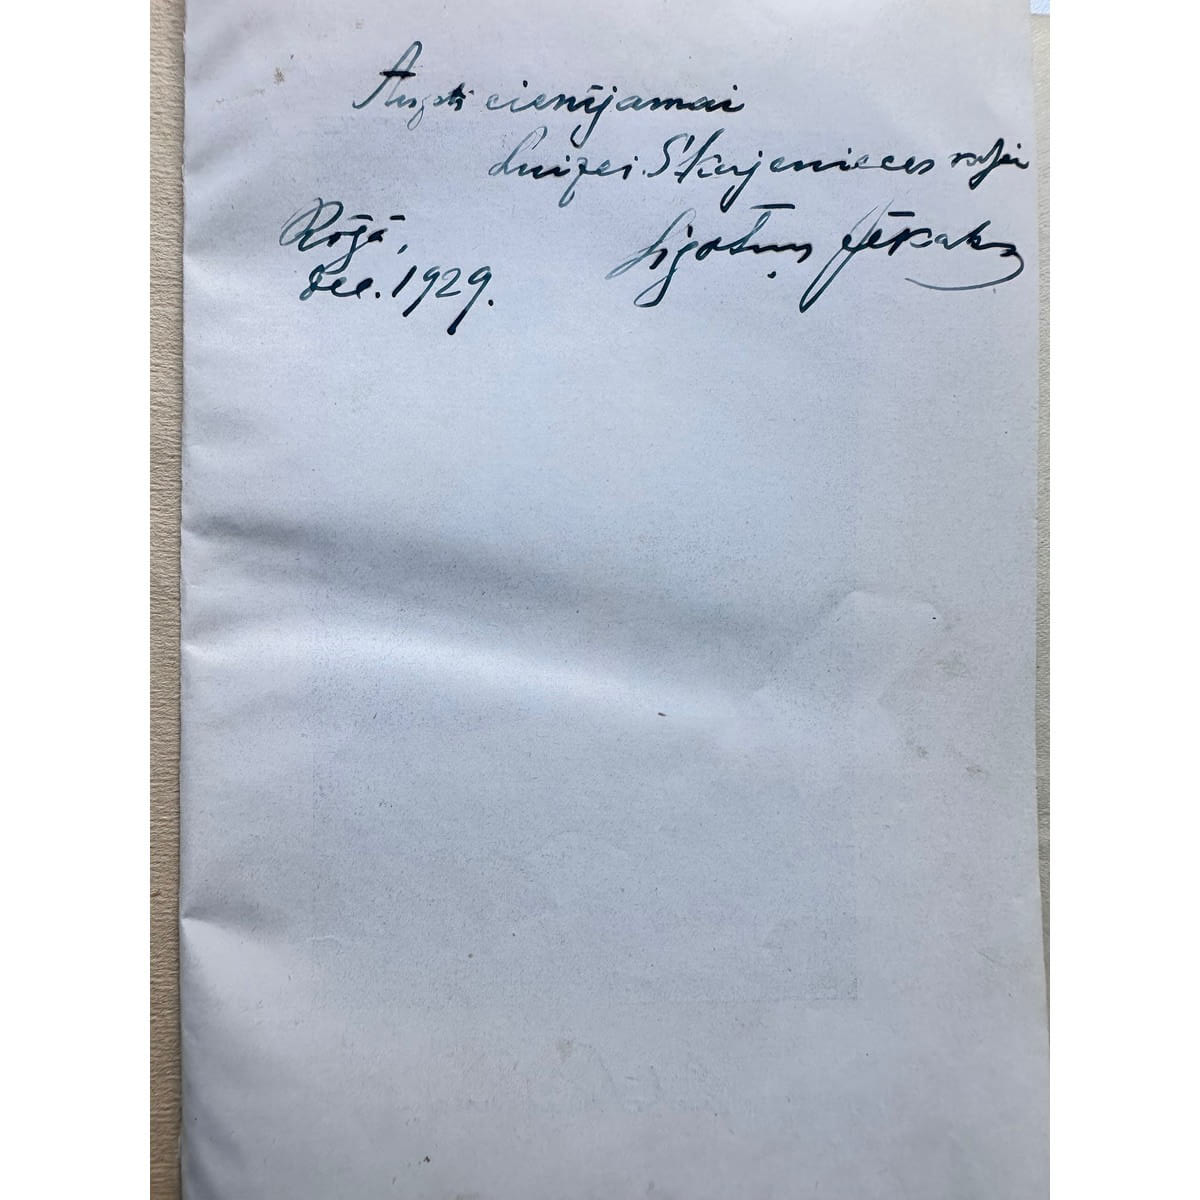 Augsti cienījamai
Luizei Skujenieces kdzei
Rīgā, Līgotņu Jēkabs
Dec. 1929.